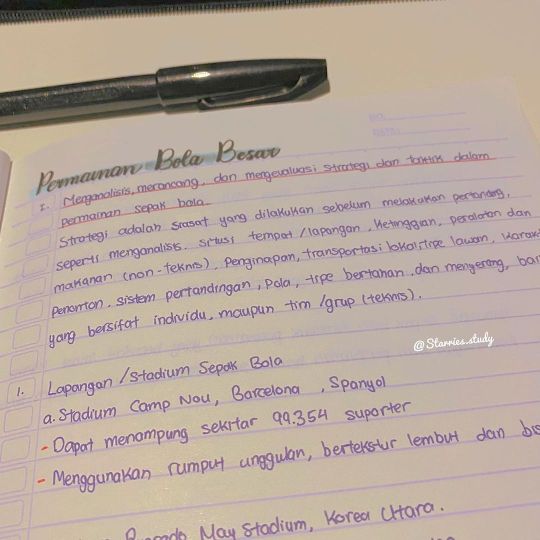 NO:
DATE:
Permainan Bola Besar
I. Menganalisis, merancang, dan mengevaluasi strategi dan taktik dalam
permainan sepak bola.
Strategi adalah siasat yang dilakukan sebelum melakukan pertanding,
seperti menganalisis. situsi tempat /lapangan, ketinggian, peralatan dan
makanan (non-teknis). Penginapan, transportasi lokal, tipe lawan,
Penonton, sistem pertandingan, pola, tipe bertahan, dan menyerang,
yang bersifat individu, maupun tim /grup (teknis).
@Starries.study
1. Lapangan /Stadium Sepak Bola
a. Stadium Camp Nou, Barcelona , Spanyol
- Dapat menampung sekitar 99.354 suporter
- Menggunakan rumput unggulan, bertekstur lembut dan
May Stadium, Korea Utara.